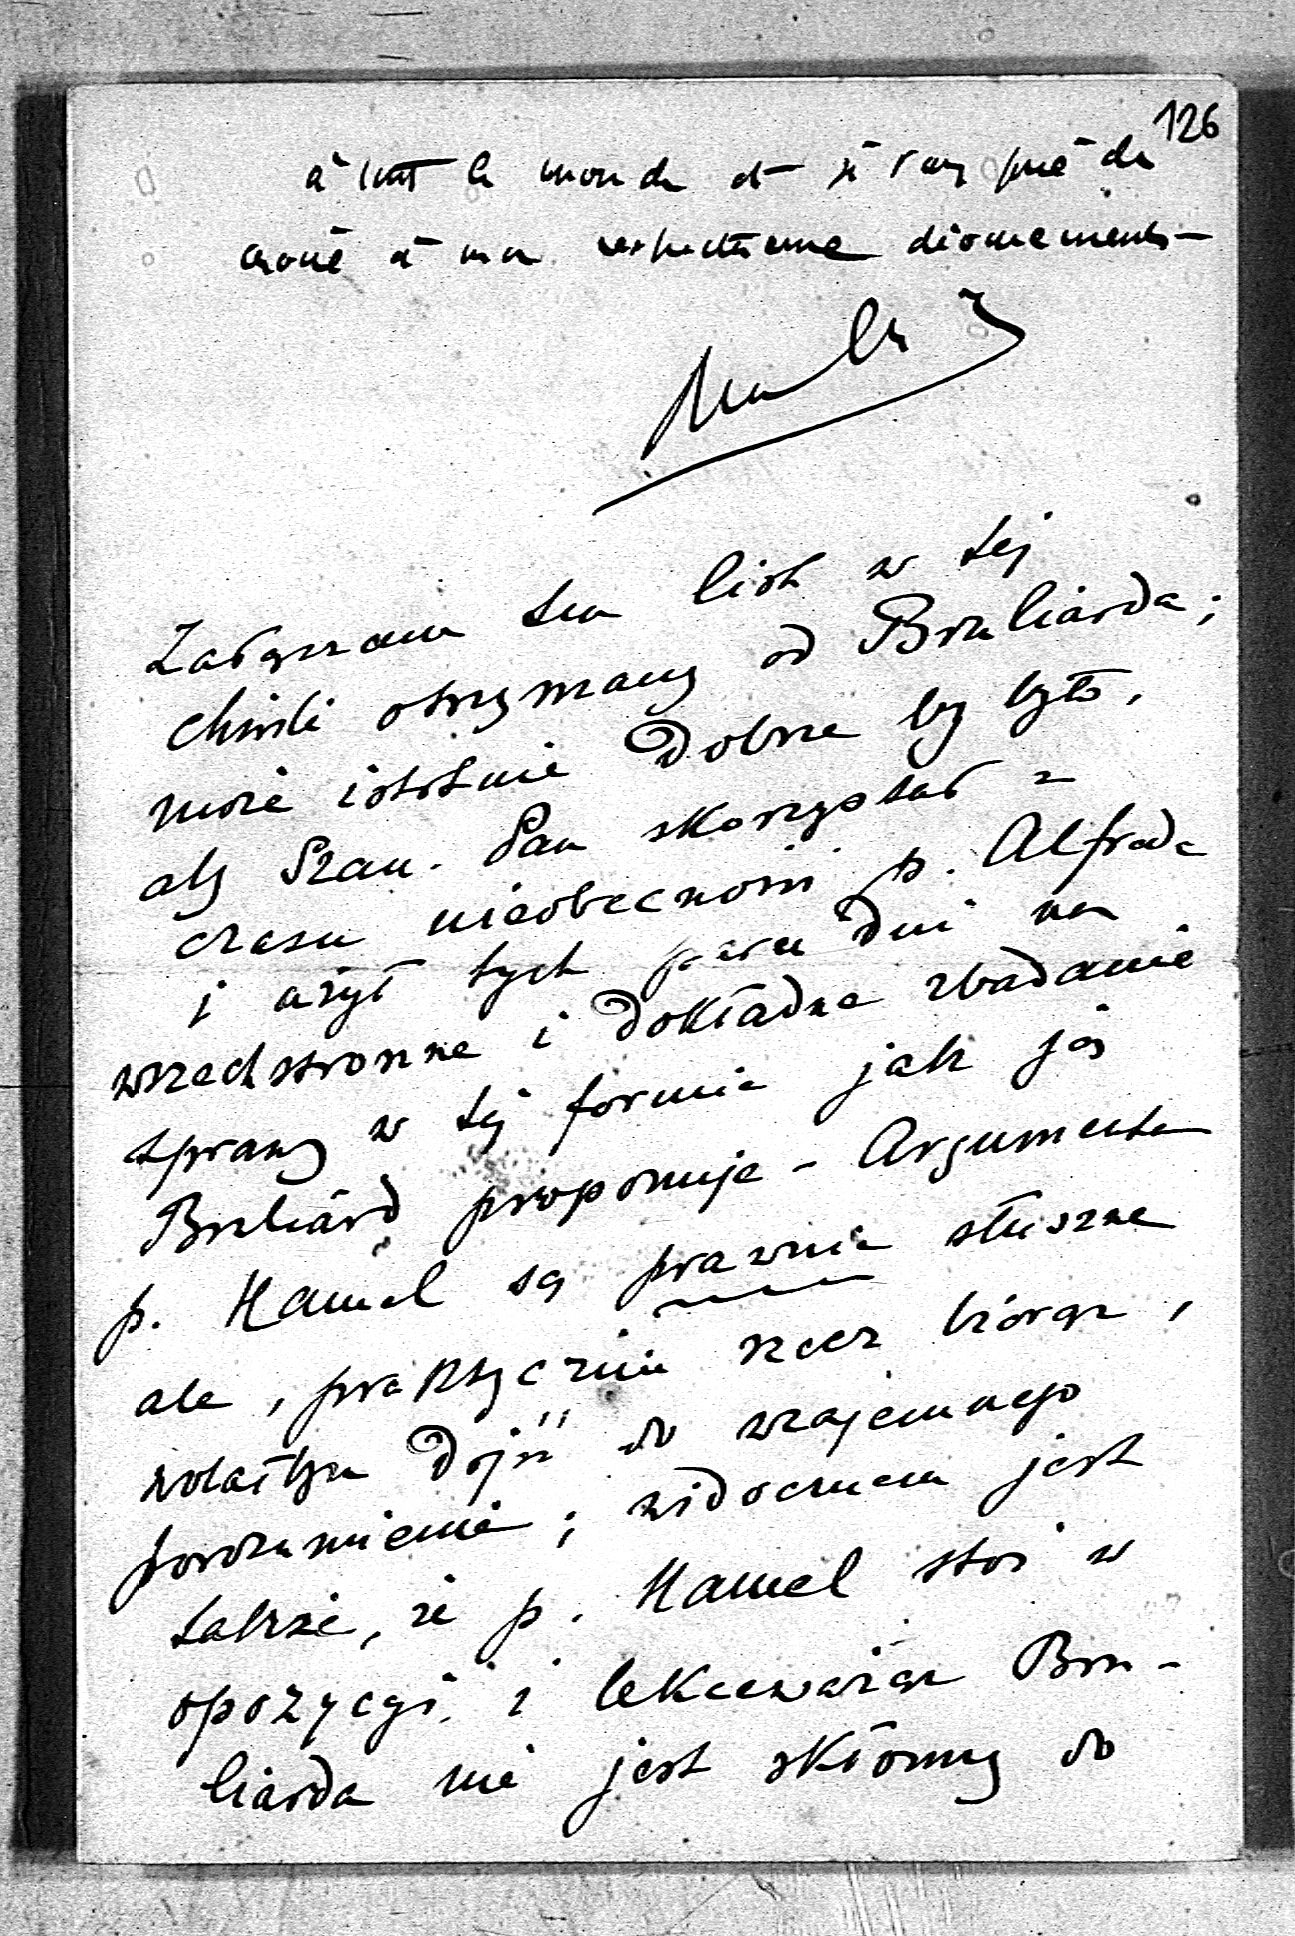 126
à tout le monde et je vous prie de
croire à mon respectueux dévouement
Załączam ten list w tej
chwili otrzymany od Bruliarda;
może istotnie dobrze by było,
aby Szan. Pan skorzystał z
czasu nieobecności p. Alfreda
i użył tych paru dni na
wszechstronne i dokładne zbadanie
sprawy w tej formie jak ją
Bruliard proponuje - Argumenta
p. Hamel są prawnie słuszne
ale, praktycznie rzecz biorąc,
dojść do wzajemnego
porozumienia; widocznem jest
także, że p. Hamel stoi w
opozycyi i lekceważąc Bru-
liarda nie jest skłonny do